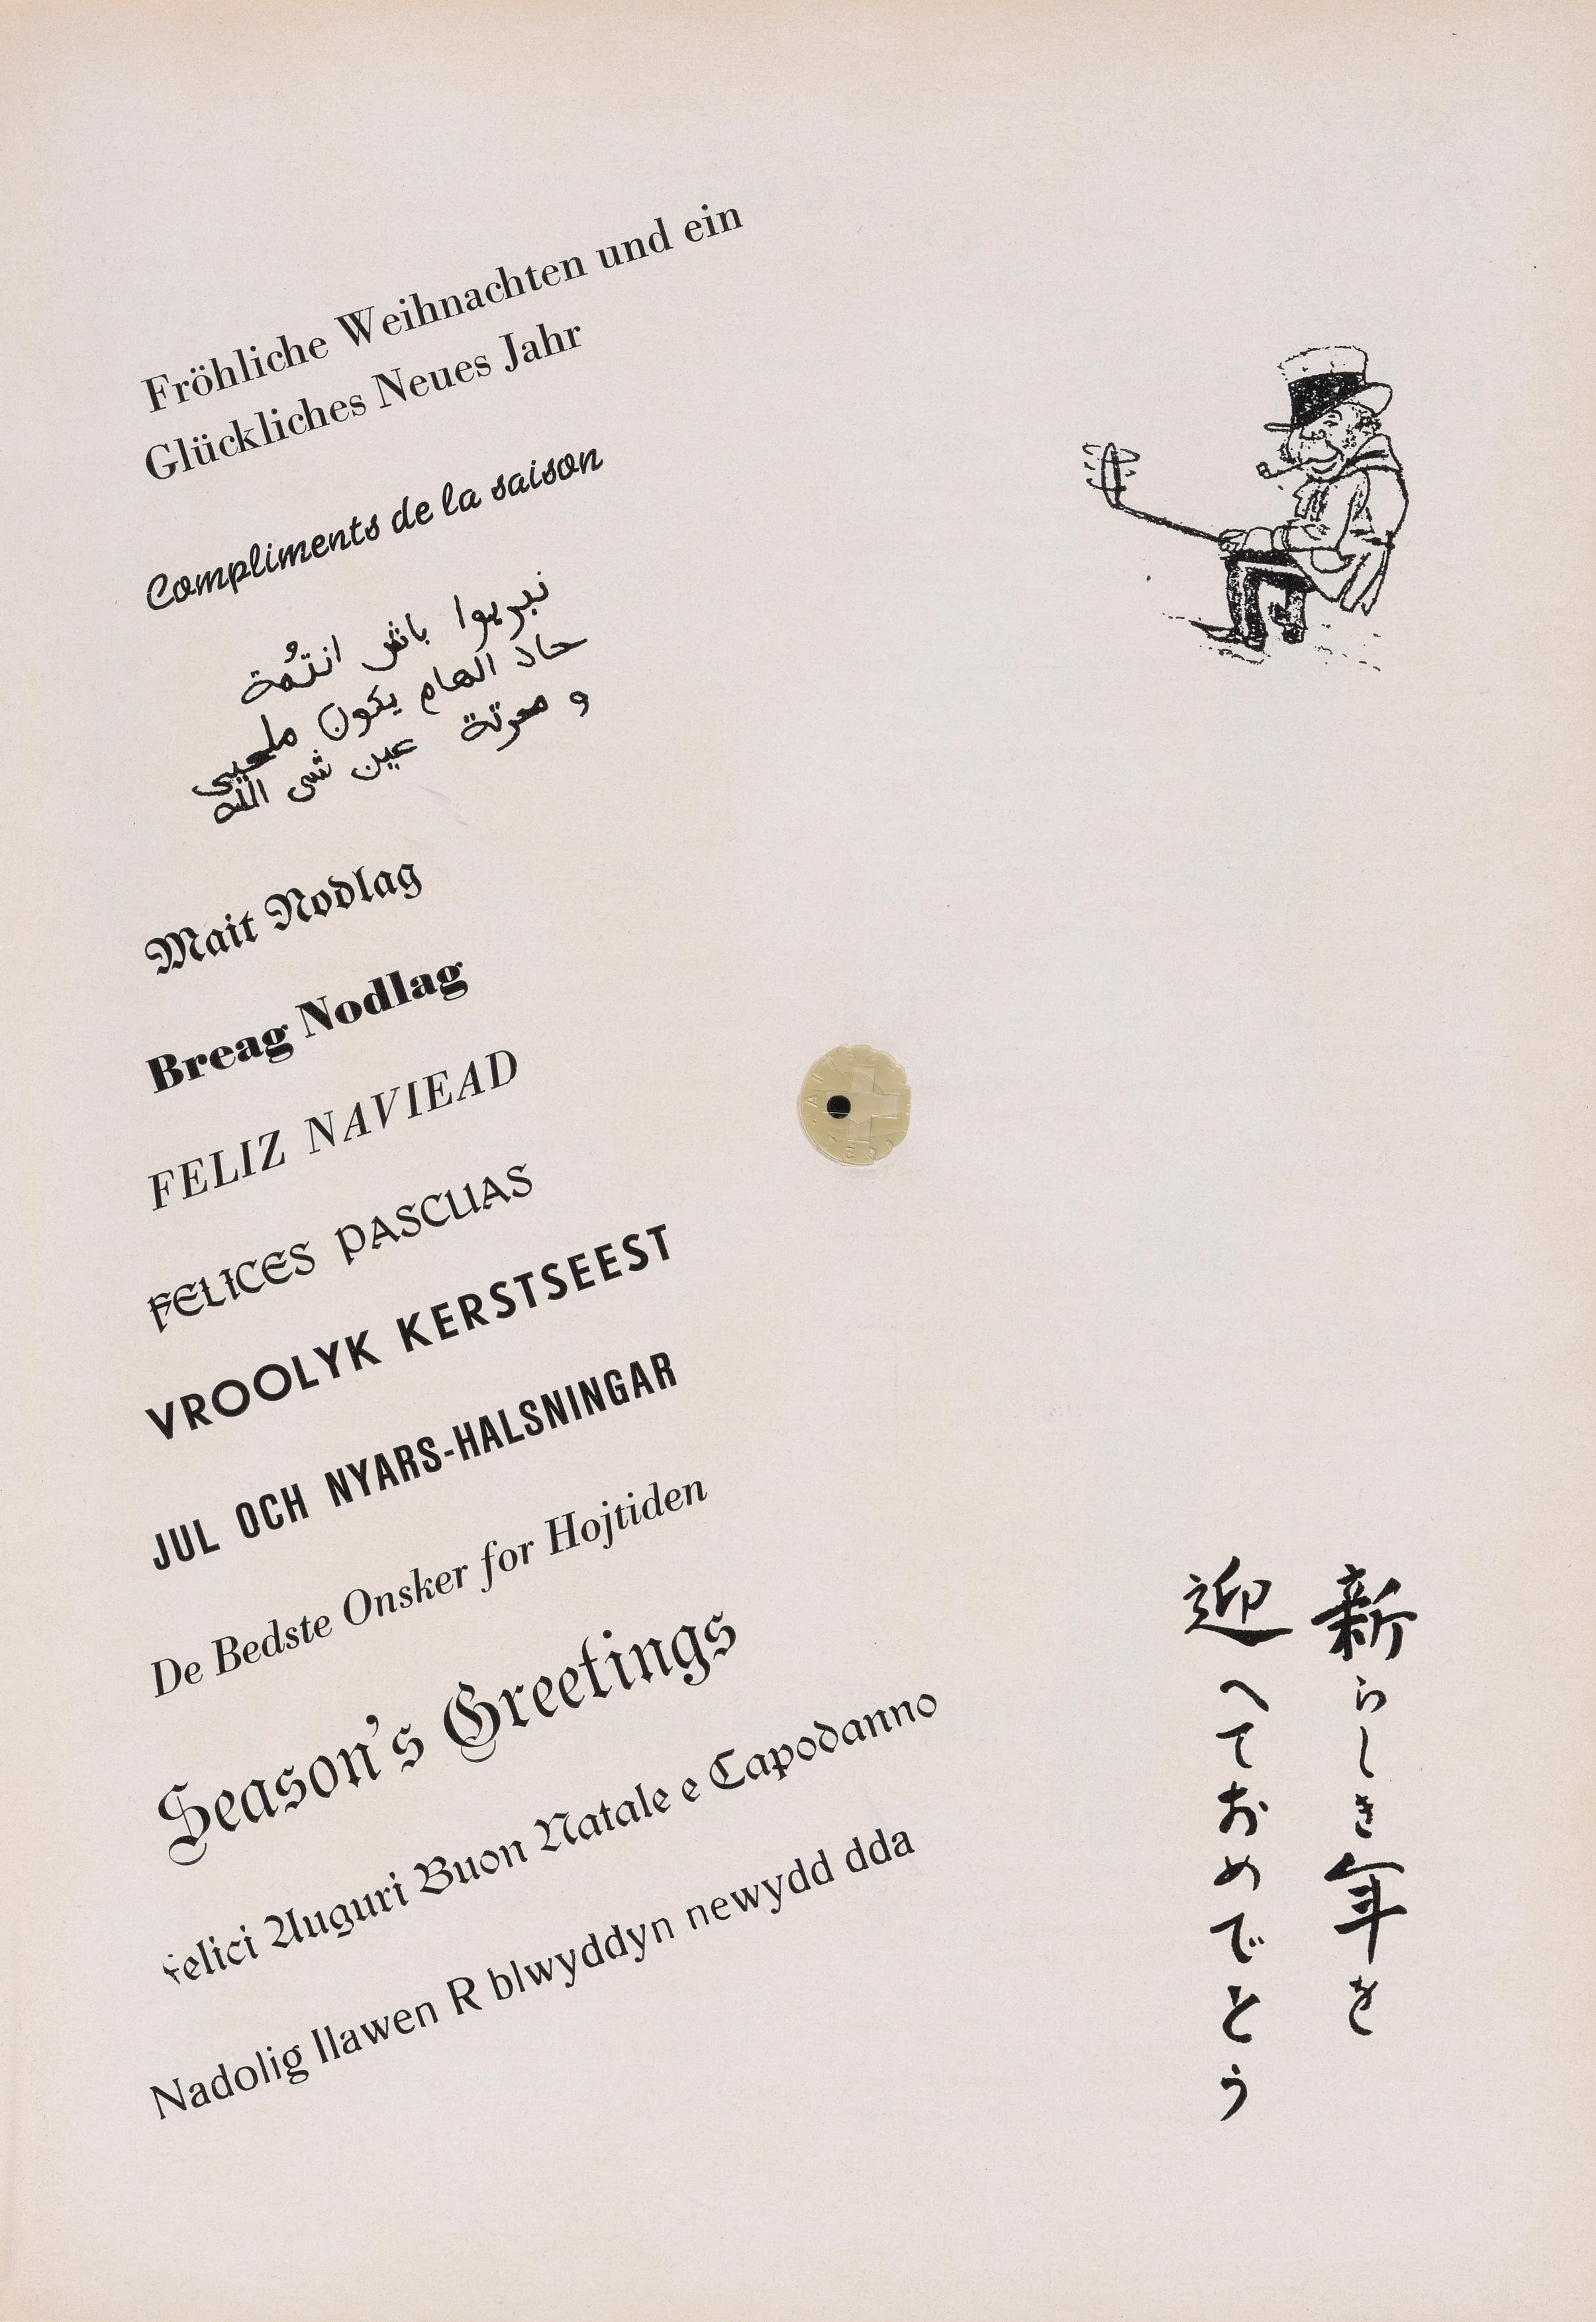 Fröhliche Weihnachten und ein
Glückliches Neues Jahr
Compliments de la saison
باش انتمة
حاد الهام يكون
و معرتة عين شى الله
Mait Nodlag
Breag Nodlag
FELIZ NAVIEAD
FELICES PASCUAS
VROOLYK KERSTSEEST
JUL OCH NYARS-HALSNINGAR
De Bedste Onsker for Hojtiden
Season's Greetings
Felici Auguri Buon Natale e Capodanno
Nadolig llawen R blwyddyn newydd dda
新らしき年を
迎へておめでとう